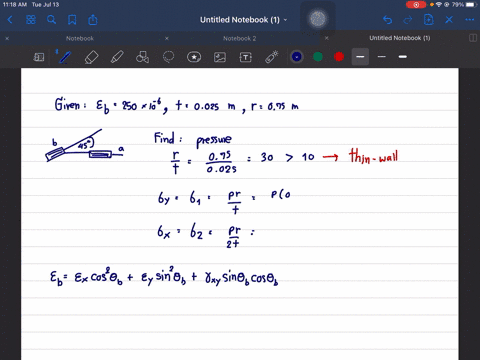 11:18 AM Tue Jul 13
79%
Untitled Notebook (1)
Notebook
Notebook 2
Untitled Notebook (1)
Given: εb = 250 ×10⁻⁶, t = 0.025 m, r = 0.75 m
Find: pressure
b 45° a
r/t = 0.75/0.025 = 30 > 10 → thin-wall
σy = σ1 = pr/t = p(0
σx = σ2 = pr/2t =
εb = εx cos²θb + εy sin²θb + γxy sinθb cosθb